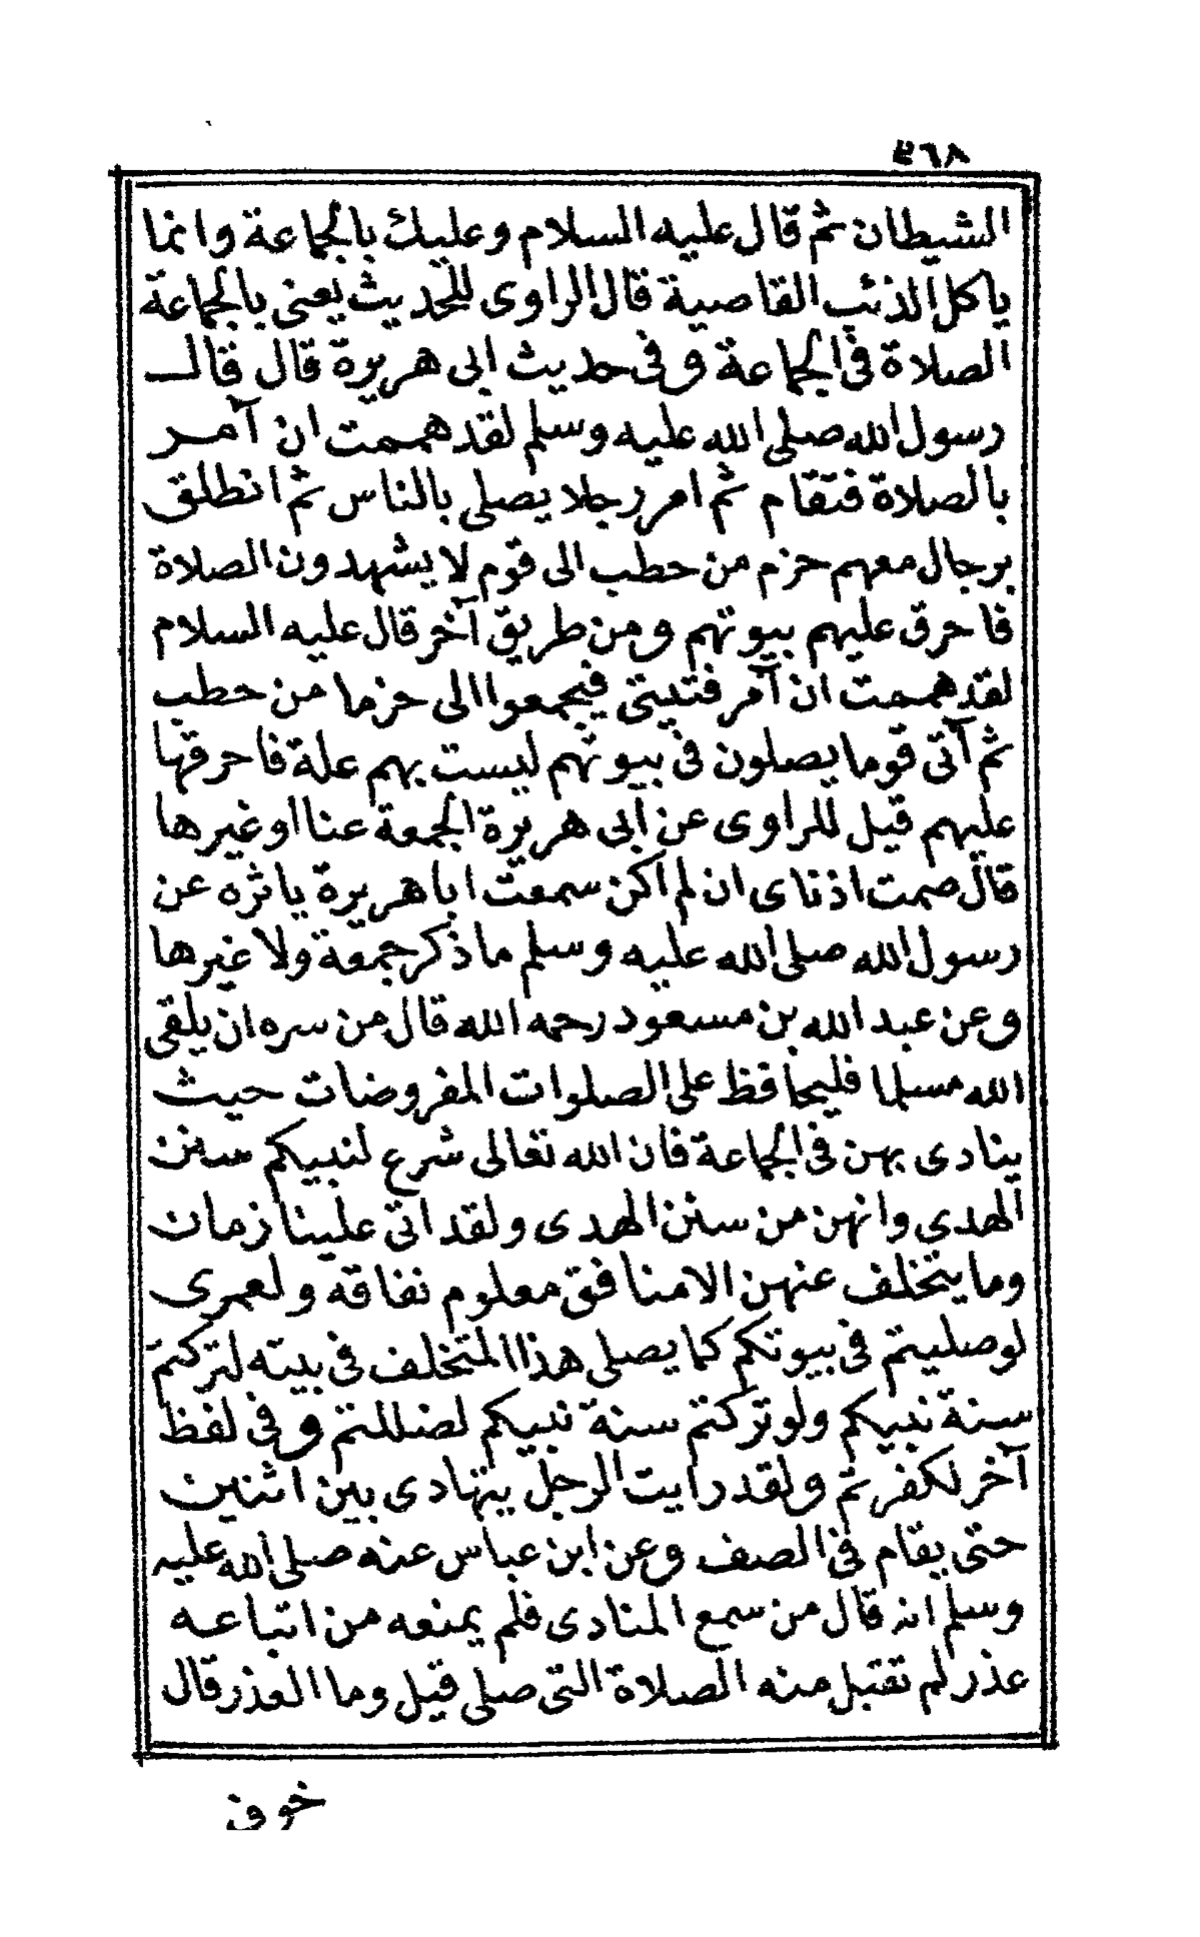 ٤٦٨
الشيطان ثم قال عليه السلام وعليك بالجماعة وانما
ياكل الذئب القاصية قال الراوى للحديث يعنى بالجماعة
الصلاة فى الجماعة وفى حديث ابى هريرة قال قال
رسول الله صلى الله عليه وسلم لقد هممت ان آمر
بالصلاة فتقام ثم امر رجلا يصلى بالناس ثم انطلق
برجال معهم حزم من حطب الى قوم لا يشهدون الصلاة
فاحرق عليهم بيوتهم ومن طريق آخر قال عليه السلام
لقد هممت ان آمر فتيتى فيجمعوا الى حزما من حطب
ثم آتى قوما يصلون فى بيوتهم ليست بهم علة فاحرقها
عليهم قيل للراوى عن ابى هريرة الجمعة عنا او غيرها
قال صمت اذناى ان لم اكن سمعت ابا هريرة ياثره عن
رسول الله صلى الله عليه وسلم ما ذكر جمعة ولا غيرها
وعن عبد الله بن مسعود رحمه الله قال من سره ان يلقى
الله مسلما فليحافظ على الصلوات المفروضات حيث
ينادى بهن فى الجماعة فان الله تعالى شرع لنبيكم سنن
الهدى وانهن من سنن الهدى ولقد اتى علينا زمان
وما يتخلف عنهن الا منافق معلوم نفاقه ولعمرى
لو صليتم فى بيوتكم كما يصلى هذا المتخلف فى بيته لتركتم
سنة نبيكم ولو تركتم سنة نبيكم لضللتم وفى لفظ
آخر لكفرتم ولقد رايت الرجل يتهادى بين اثنين
حتى يقام فى الصف وعن ابن عباس عنه صلى الله عليه
وسلم انه قال من سمع المنادى فلم يمنعه من اتباعه
عذر لم تقبل منه الصلاة التى صلى قيل وما العذر قال
خوف